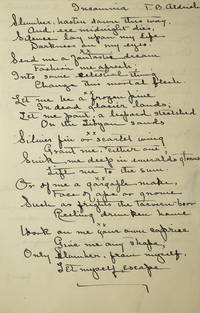 Insomnia T. B. Aldrich
Slumber, hasten down this way,
And, ere midnight dies,
Silence lay upon my lips
Darkness on my eyes.
x x
Send me a fantastic dream
Fashion me afresh
Into some celestial thing
Change this mortal flesh
x x
Let me be a frozen pine
In dead glacier lands;
Let me pant, a leopard stretched
On the Libyan sands
x x
Silver fin or scarlet wing
Grant me, either one;
Sink me deep in emerald glooms
Lift me to the sun.
x x
Or of me a gargoyle make,
Face of ape or gnome
Such as frights the tavern-boor
Reeling drunken home
x x
Work on me your own caprice
Give me any shape,
Only, Slumber, from myself,
Let myself escape